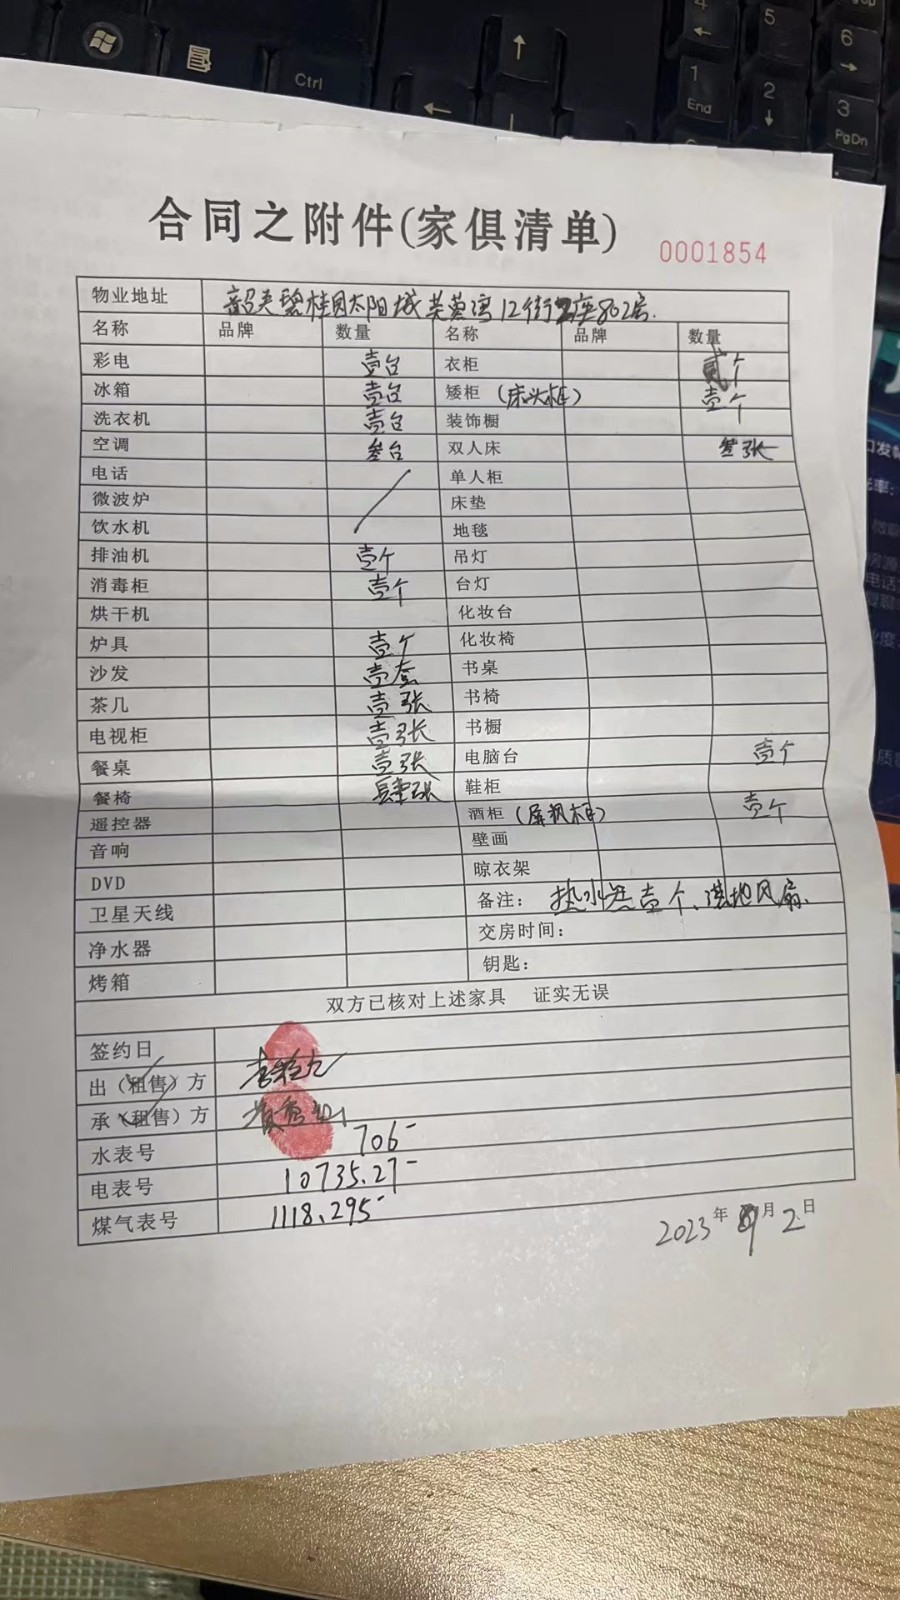 Ctrl
4
5
6
1
End
2
3
PgDn
合同之附件(家俱清单)
0001854
物业地址 韶关碧桂园太阳城芙蓉湾12街座802房.
名称 品牌 数量 名称 品牌 数量
彩电 壹台 衣柜 贰个
冰箱 壹台 矮柜 (床头柜) 壹个
洗衣机 壹台 装饰橱
空调 叁台 双人床 叁张
电话 单人柜
微波炉 床垫
饮水机 地毯
排油机 壹个 吊灯
消毒柜 壹个 台灯
烘干机 化妆台
炉具 壹个 化妆椅
沙发 壹套 书桌
茶几 壹张 书椅
电视柜 壹张 书橱
餐桌 壹张 电脑台 壹个
餐椅 肆张 鞋柜
遥控器 酒柜 (屏风柜) 壹个
音响 壁画
DVD 晾衣架
卫星天线 备注: 热水器壹个、落地风扇、
净水器 交房时间:
烤箱 钥匙:
双方已核对上述家具 证实无误
签约日
出(租售)方
承(租售)方
水表号 706-
电表号 10735.27-
煤气表号 1118.295-
2023年月2日